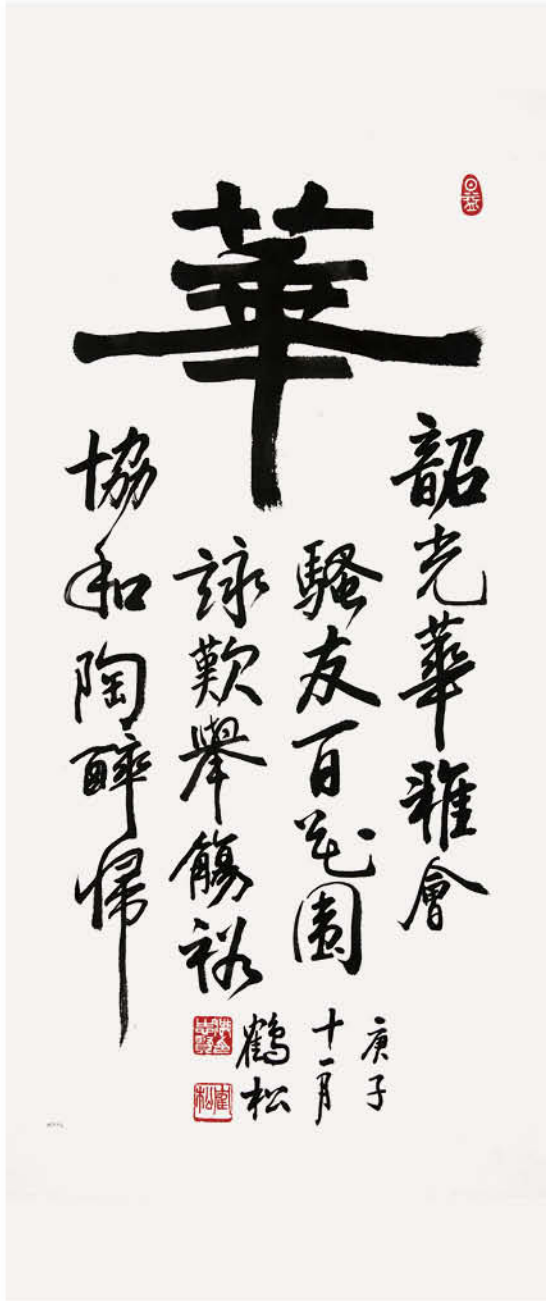 華
韶光華雅會
騷友百花園
詠歎舉觴裕
協和陶醉帰
庚子
十一月
鶴松